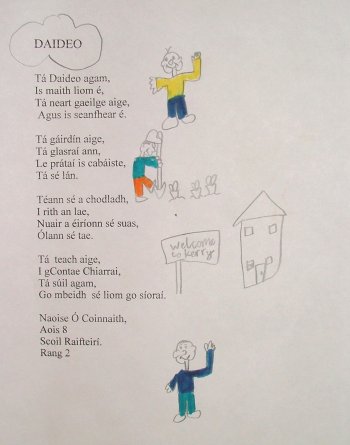 DAIDEO
Tá Daideo agam,
Is maith liom é,
Tá neart gaeilge aige,
Agus is seanfhear é.
Tá gáirdín aige,
Tá glasraí ann,
Le prátaí is cabáiste,
Tá sé lán.
Téann sé a chodladh,
I rith an lae,
Nuair a éiríonn sé suas,
Ólann sé tae.
Tá teach aige,
I gContae Chiarraí,
Tá súil agam,
Go mbeidh sé liom go síoraí.
welcome
to kerry
Naoise Ó Coinnaith,
Aois 8
Scoil Raifteirí.
Rang 2